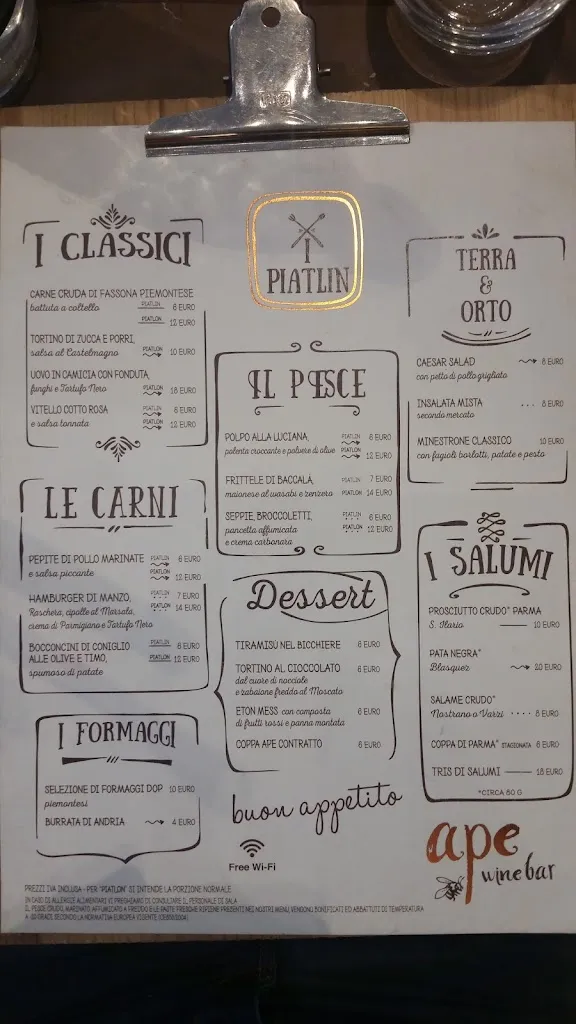 I
PIATLIN
I CLASSICI
CARNE CRUDA DI FASSONA PIEMONTESE
battuta a coltello PIATLIN 6 EURO
PIATLON 12 EURO
TORTINO DI ZUCCA E PORRI,
salsa al Castelmagno PIATLON 10 EURO
UOVO IN CAMICIA CON FONDUTA,
funghi e Tartufo Nero PIATLON 18 EURO
VITELLO COTTO ROSA PIATLIN 8 EURO
e salsa tonnata PIATLON 12 EURO
LE CARNI
PEPITE DI POLLO MARINATE PIATLIN 6 EURO
e salsa piccante PIATLON 12 EURO
HAMBURGER DI MANZO, PIATLIN 7 EURO
Raschera, cipolle al Marsala, PIATLON 14 EURO
crema di Parmigiano e Tartufo Nero
BOCCONCINI DI CONIGLIO PIATLIN 6 EURO
ALLE OLIVE E TIMO, PIATLON 12 EURO
spumoso di patate
I FORMAGGI
SELEZIONE DI FORMAGGI DOP 10 EURO
piemontesi
BURRATA DI ANDRIA 4 EURO
IL PESCE
POLPO ALLA LUCIANA, PIATLIN 6 EURO
polenta croccante e polvere di olive PIATLON 12 EURO
FRITTELE DI BACCALÁ, PIATLIN 7 EURO
maionese al wasabi e zenzero PIATLON 14 EURO
SEPPIE, BROCCOLETTI, PIATLIN 6 EURO
pancetta affumicata PIATLON 12 EURO
e crema carbonara
Dessert
TIRAMISÙ NEL BICCHIERE 6 EURO
TORTINO AL CIOCCOLATO 6 EURO
dal cuore di nocciole
e zabaione freddo al Moscato
ETON MESS con composta 6 EURO
di frutti rossi e panna montata
COPPA APE CONTRATTO 6 EURO
buon appetito
Free Wi-Fi
TERRA
&
ORTO
CAESAR SALAD 8 EURO
con petto di pollo grigliato
INSALATA MISTA 8 EURO
secondo mercato
MINESTRONE CLASSICO 10 EURO
con fagioli borlotti, patate e pesto
I SALUMI
PROSCIUTTO CRUDO* PARMA
S. Ilario 10 EURO
PATA NEGRA*
Blasquez 20 EURO
SALAME CRUDO*
Nostrano o Varzi 8 EURO
COPPA DI PARMA* STAGIONATA 6 EURO
TRIS DI SALUMI 18 EURO
*CIRCA 80 G
ape
wine bar
PREZZI IVA INCLUSA - PER "PIATLON" SI INTENDE LA PORZIONE NORMALE
IN CASO DI ALLERGIE ALIMENTARI VI PREGHIAMO DI CONSULTARE IL PERSONALE DI SALA
IL PESCE CRUDO, MARINATO, AFFUMICATO A FREDDO E LE PASTE FRESCHE RIPIENE PRESENTI NEI NOSTRI MENU VENGONO BONIFICATI ED ABBATTUTI DI TEMPERATURA
A -20 GRADI, SECONDO LA NORMATIVA EUROPEA VIGENTE